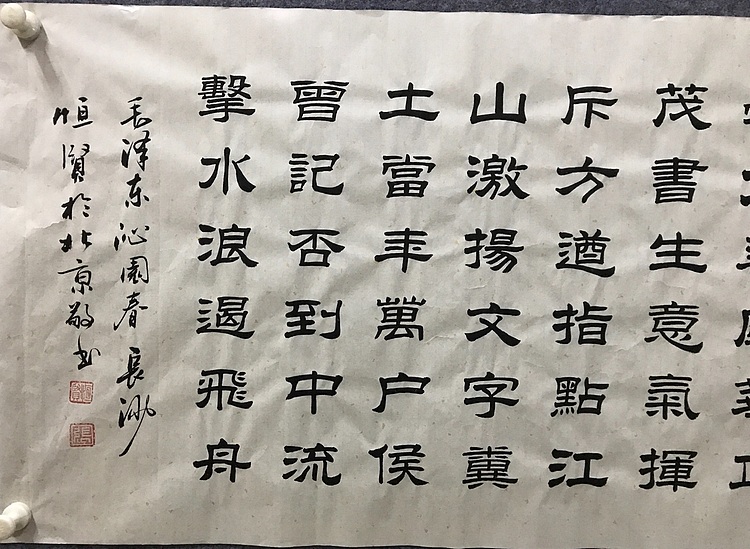 茂書生意氣揮
斥方遒指點江
山激揚文字糞
土當年萬户侯
曾記否到中流
擊水浪遏飛舟
毛泽东沁園春 長沙
恒賢於北京敬书